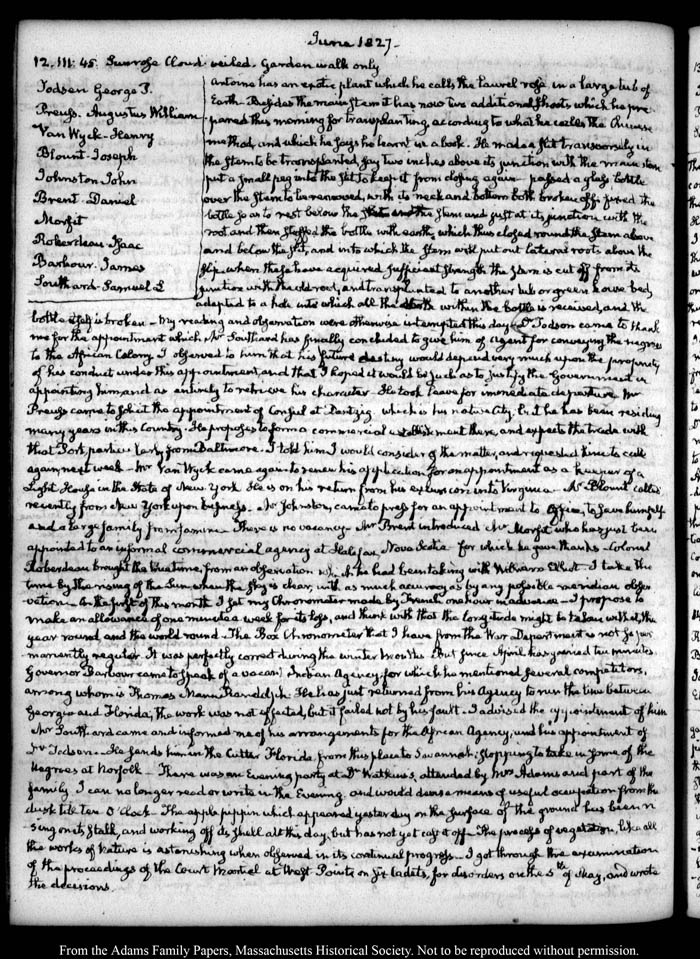 June 1827.
12. III: 45. Sunrose Cloud veiled. Garden walk only
Todsen George P.
Preuss. Augustus William
Van Wyck. Henry
Blount. Joseph
Johnston John
Brent. Daniel
Morfit
Roberdeau. Isaac
Barbour. James
Southard. Samuel L
Antoine has an exotic plant which he calls the Laurel rose in a large tub of
Earth. Besides the main Stem it has now two additional shoots which he pre-
pared this morning for transplanting, according to what he calls the Chinese
method, and which he says he learnt in a book. He made a slit transversely in
the Stem to be transplanted, say two inches above its junction with the main stem
put a small peg into the slit to keep it from closing again— passed a glass bottle
over the Stem to be removed, with its neck and bottom both broken off; fixed the
bottle so as to rest below the Stem and just at its junction with the
root and then stopped the bottle with earth, which thus closed round the Stem above
and below the slit, and into which the Stem will put out lateral roots above the
slip. when these have acquired sufficient strength the Stem is cut off from its
junction with the old root, and transplanted to another tub or green house bed,
adapted to a hole into which all the earth within the bottle is received, and the
bottle itself is broken— My reading and observation were otherwise interrupted this day— Dr Todson came to thank
me for the appointment which Mr Southard has finally concluded to give him of Agent for conveying the negroes
to the African Colony. I observed to him that his future destiny would depend very much upon the propriety
of his conduct under this appointment, and that I hoped it would be such as to justify the Government in
appointing him, and as entirely to retrieve his character— He took leave for immediate departure. Mr
Preuss came to solicit the appointment of Consul at Dantzig which is his native City. but he has been residing
many years in this Country. He proposes to form a commercial establishment there, and expects the trade with
that Port particularly from Baltimore. I told him I would consider of the matter, and requested him to call
again next week— Mr Van Wyck came again to renew his application for an appointment as a keeper of a
Light House in the State of New York. He is on his return from his excursion into Virginia— Mr Blount called
recently from New York upon business. Mr Johnston, came to press for an appointment to Office, to save himself
and a large family from famine. There is no vacancy. Mr Brent introduced Mr Morfit who has just been
appointed to an informal commercial agency at Halifax, Nova Scotia for which he gave thanks— Colonel
Roberdeau brought the true time, from an observation which he had been taking with William Elliot. I take the
time by the rising of the Sun when the sky is clear, with as much accuracy as by any possible meridian obser-
vation— On the first of this month I set my Chronometer made by French one hour in advance— I propose to
make an allowance of one minute a week for its loss, and think with that the longitude might be taken with it, the
year round, and the world round— The Box Chronometer that I have from the War Department is not so per-
manently regular. It was perfectly correct during the winter Months but since April has varied ten minutes.
Governor Barbour came to speak of a vacant Indian Agency, for which he mentioned several competitors,
among whom is Thomas Mann Randolph. He has just returned from his Agency to run the line between
Georgia and Florida; the work was not effected, but it failed not by his fault. I advised the appointment of him
Mr Southard came and informed me of his arrangements for the African Agency, and his appointment of
Dr Todson— He sends him in the Cutter Florida, from this place to Savannah; stopping to take in some of the
Negroes at Norfolk— There was an Evening party at Dr Watkins's, attended by Mrs Adams and part of the
family. I can no longer read or write in the Evening, and would devise a means of useful occupation from the
dusk till Ten O'Clock— The apple pippin which appeared yesterday on the surface of the ground has been ri-
sing on its stalk, and working off its shell all this day, but has not yet cast it off— The process of vegetation, like all
the works of Nature is astonishing when observed in its continual progress— I got through the examination
of the proceedings of the Court Martial at West Point, on six Cadets, for disorders on the 5th of May, and wrote
the decisions.
From the Adams Family Papers, Massachusetts Historical Society. Not to be reproduced without permission.